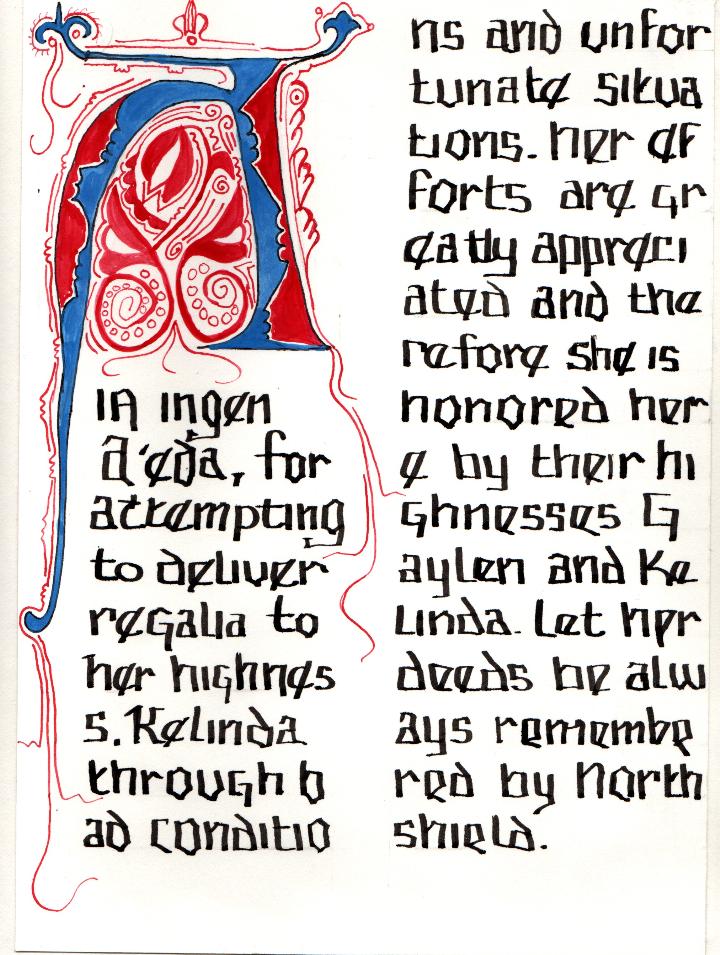 A
IA ingen
A'eda, for
attempting
to deliver
regalia to
her highnes
s. Kelinda
through b
ad conditio
ns and unfor
tunate situa
tions. Her ef
forts are gr
eatly appreci
ated and the
refore she is
honored her
e by their hi
ghnesses G
aylen and Ke
linda. Let her
deeds be alw
ays remembe
red by North
shield.